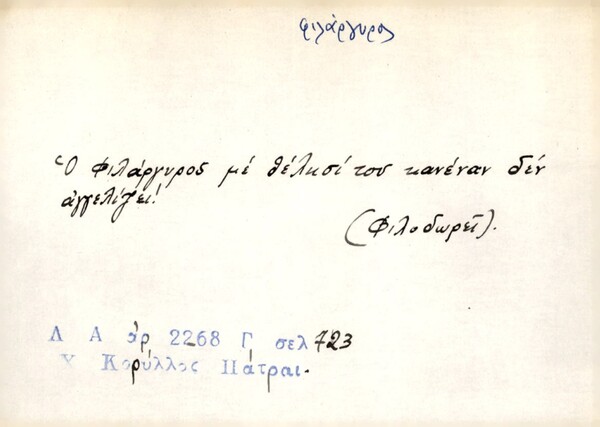 φιλάργυρος
Ὁ Φιλάργυρος μέ θέλησί του κανέναν δέν
ἀγγελίζει!
(Φιλοδωρεῖ).
Λ Α ἀρ 2268 Γ σελ 723
Χ Κορύλλος Πάτραι.